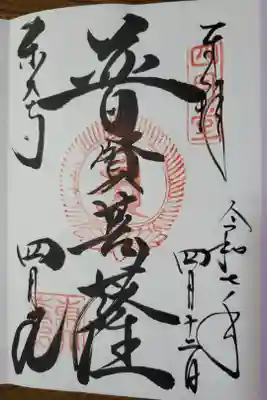 奉拝
令和七年
四月十二日
普賢菩薩
東大寺
四月堂